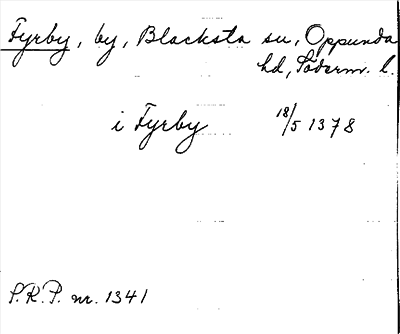 Fyrby, by, Blacksta sn, Oppunda
hd, Söderm. l.
i Fyrby 18/5 1378
S.R.P. nr. 1341